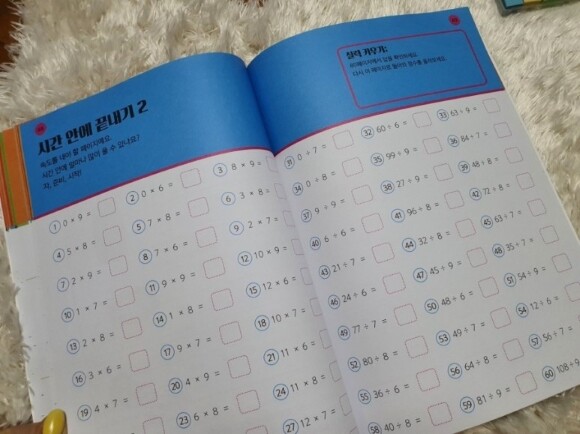 시간 안에 끝내기 2
속도를 내야 할 페이지예요.
시간 안에 얼마나 많이 풀 수 있나요?
자, 준비, 시작!
1 0 × 9 = 2 0 × 6 = 3 8 × 9 =
4 5 × 8 = 5 7 × 8 = 6 3 × 8 =
7 2 × 9 = 8 7 × 6 = 9 2 × 7 =
10 1 × 7 = 11 9 × 9 = 12 10 × 9 =
13 2 × 8 = 14 1 × 8 = 15 12 × 6 =
16 3 × 6 = 17 9 × 7 = 18 10 × 7 =
19 4 × 7 = 20 4 × 9 = 21 11 × 6 =
23 6 × 8 = 24 11 × 8 =
27 12 × 7 =
실력 키우기:
답을 확인하세요.
다시, 이 페이지로 돌아와 점수를 올려보세요.
31 0 ÷ 7 = 32 60 ÷ 6 = 33 63 ÷ 9 =
34 0 ÷ 8 = 35 99 ÷ 9 = 36 84 ÷ 7 =
37 9 ÷ 9 = 38 27 ÷ 9 = 39 48 ÷ 8 =
40 6 ÷ 6 = 41 96 ÷ 8 = 42 72 ÷ 8 =
43 21 ÷ 7 = 44 32 ÷ 8 = 45 63 ÷ 7 =
46 24 ÷ 6 = 47 45 ÷ 9 = 48 35 ÷ 7 =
49 77 ÷ 7 = 50 48 ÷ 6 = 51 54 ÷ 9 =
52 80 ÷ 8 = 53 49 ÷ 7 = 54 12 ÷ 6 =
55 36 ÷ 6 = 56 64 ÷ 8 = 57 56 ÷ 7 =
58 40 ÷ 8 = 59 81 ÷ 9 = 60 108 ÷ 9